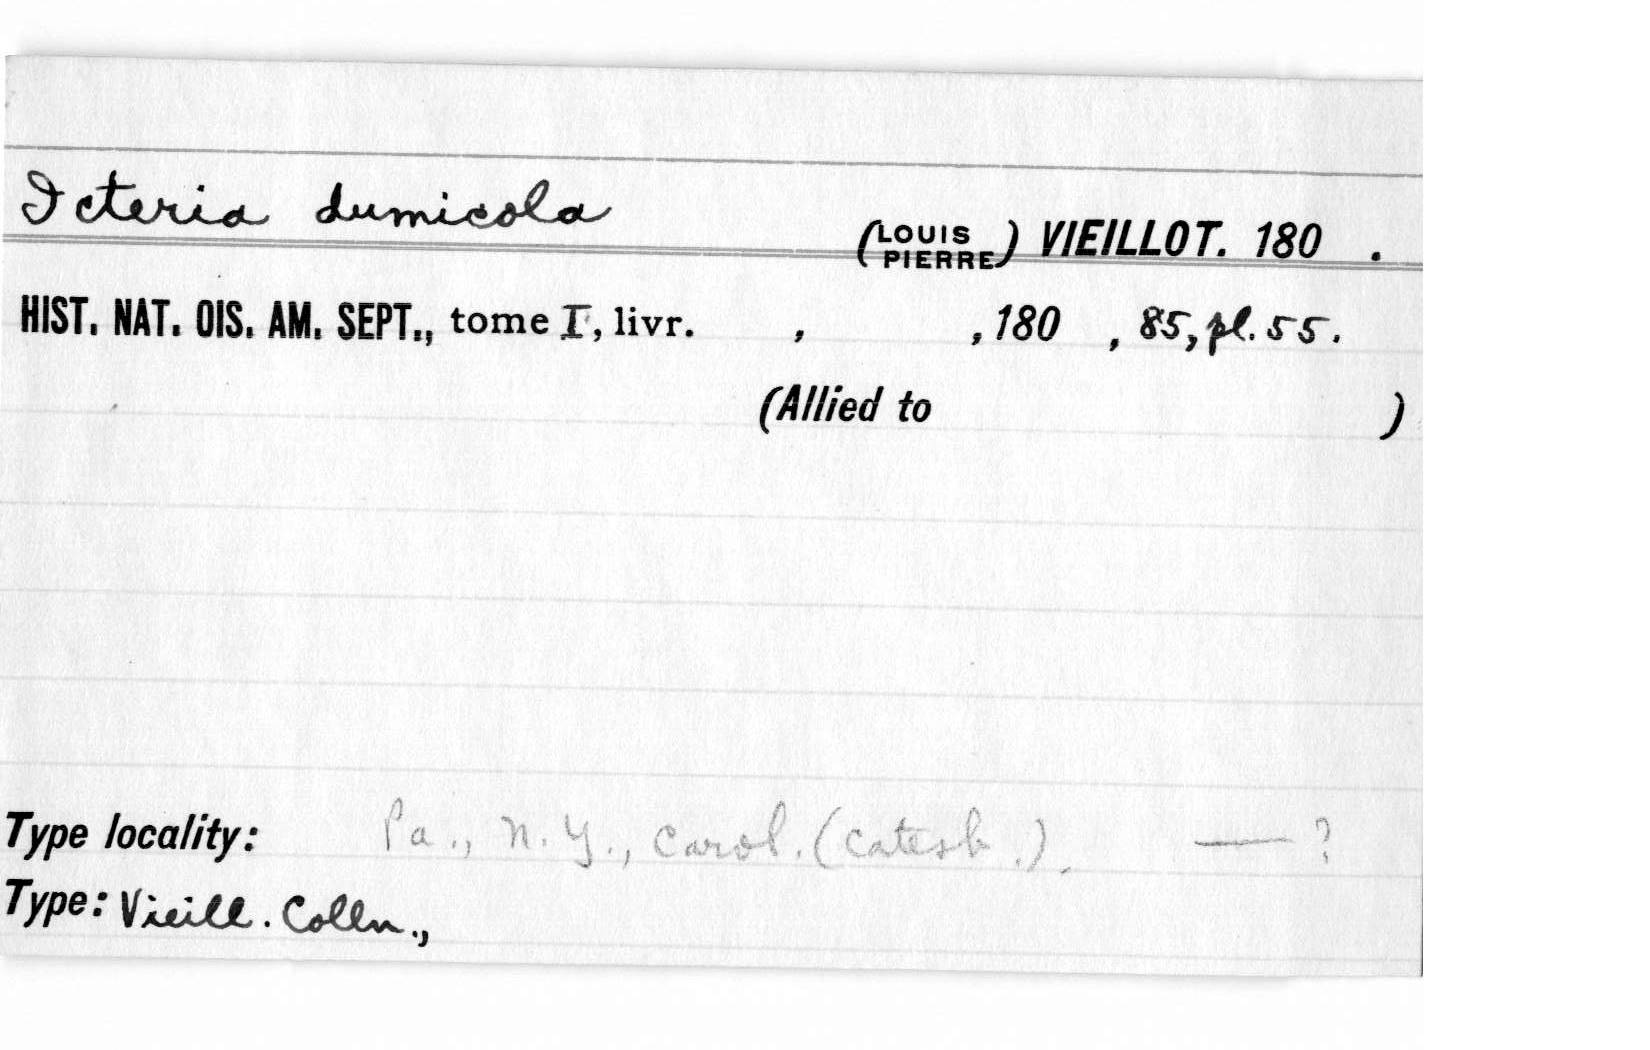 Icteria dumicola (LOUIS PIERRE) VIEILLOT. 180 .
HIST. NAT. OIS. AM. SEPT., tome I, livr. , , 180 , 85, pl. 55.
(Allied to )
Type locality: Pa., N.Y., Carol. (Catesb.). — ?
Type: Vieill. Colln.,